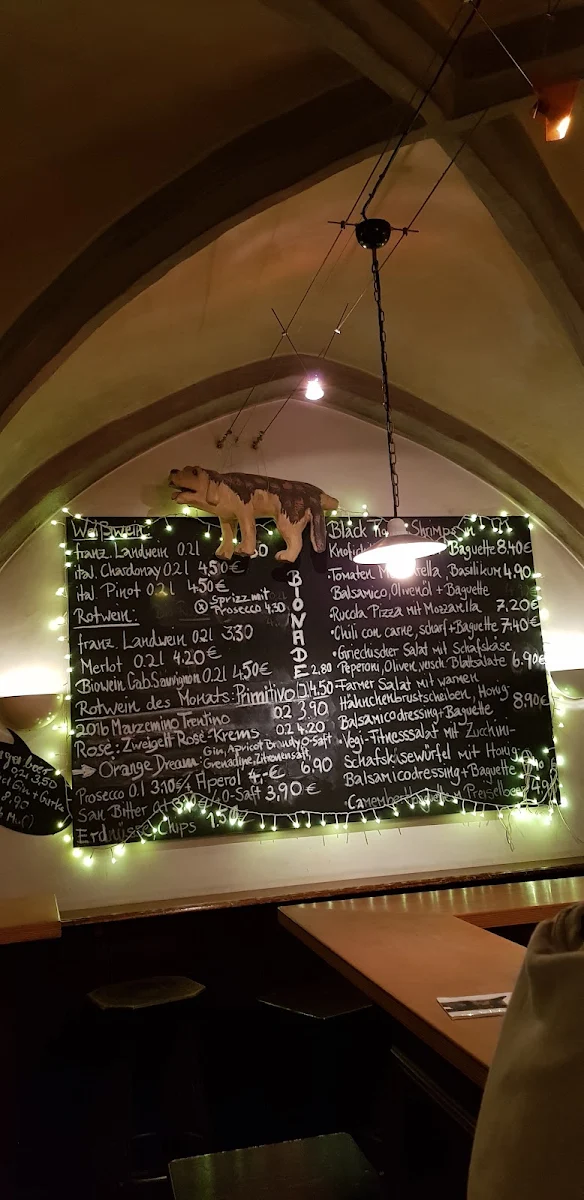 Weißwein
franz. Landwein 0.2l
ital. Chardonay 0.2l 4.50€
ital. Pinot 0.2l 4.50€
Sprizz mit
Prosecco 4.30
Rotwein:
franz. Landwein 0.2l 3.30
Merlot 0.2l 4.20€
Biowein Cab. Sauvignon 0.2l 4,50€
Rotwein des Monats: Primitivo 4.50
2016 Marzemino Trentino 0.2 3.90
Rosé: Zweigelt Rosé-Krems 0.2 4.20
Gin, Apricot Brandy, O-Saft,
→ Orange Dream: Grenadine, Zitronensaft 6.90
Prosecco 0.1 3.10€ + Aperol 4.-€
San Bitter O-Saft 3,90€
Erdnüsse Chips 1.50
BIONADE
2,80
Black Shrimps
Baguette 8.40€
Tomaten Basilikum 4.90
Balsamico, Olivenöl + Baguette
• Rucola Pizza mit Mozzarella 7,20€
• Chili con carne, scharf + Baguette 7.40€
• Griechischer Salat mit Schafskäse,
Peperoni, Oliven, versch. Blattsalate 6.90€
• Farmer Salat mit warmen
Hähnchenbrustscheiben, Honig
Balsamicodressing + Baguette 8,90€
• Vegi-Fitnesssalat mit Zucchini-
Schafskäsewürfel mit Honig
Balsamicodressing + Baguette
Camembert Preiselbeer
0.2l 3.50
Gin + Gurke
8.90